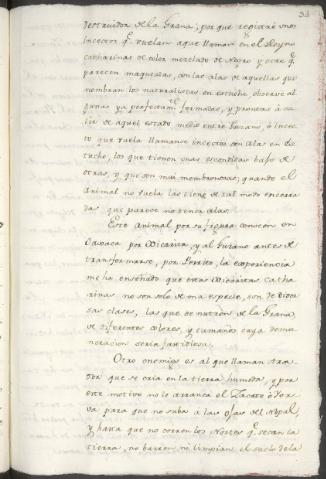 34
destruidor de la Grana; por que registré unos
incectos q.e vuelan a que llaman en el Reyno
Catharinas de color mezclado de negro y otro q.e
parecen maqueadas, con las alas de aquellas que
nombran los naturalistas en estuche observé al
gunas ya perfectam.te formadas, y prontas á sa
lir de aquel estado medio entre Gusano, ó incec
to que vuela llamanse incectos con alas en Es
tuche, los que tienen unas escondidas bajo de
otras, y que son mui membranosas; quando el
Animal no vuela las tiene de tal modo encerra
das que parece no tenia alas.
Este Animal por su figura conocen en
Oaxaca por Vicarita, y al Gusano antes de
transformarse, por Perrito, la experiencia
me ha enseñado que estas Vicaritas Catha
rinas no son solo de una especie, son de diver
sas clases, las que se nutren de la Grana
de diferentes colores, y tamaños cuya deno
minacion seria fastidiosa.
Otro enemigo es al que llaman
que se cria en la tierra humeda, y por
este motivo no le arranca el Zacate ó Yer
va para que no suba á las ojas del Nopal,
y hasta que no corren los Nortes q.e secan la
tierra, no barren ni limpian el suelo de la